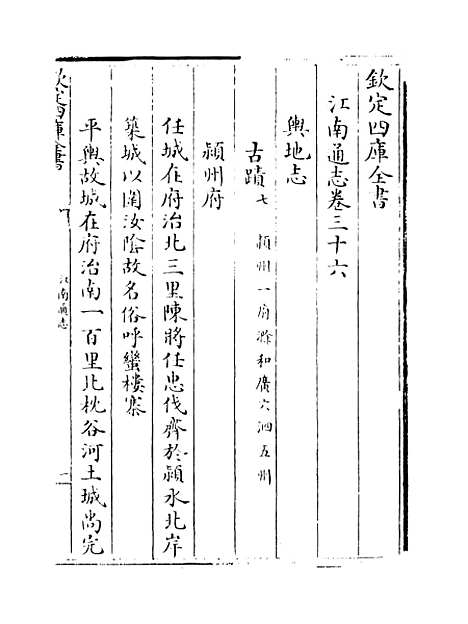 欽定四庫全書
江南通志卷三十六
輿地志
古蹟七 潁州一府滁和廣六泗五州
潁州府
任城在府治北三里陳將任忠伐齊於潁水北岸
築城以圍汝陰故名俗呼蠻樓寨
平輿故城在府治南一百里北枕谷河土城尚完
欽定四庫全書
江南通志
一